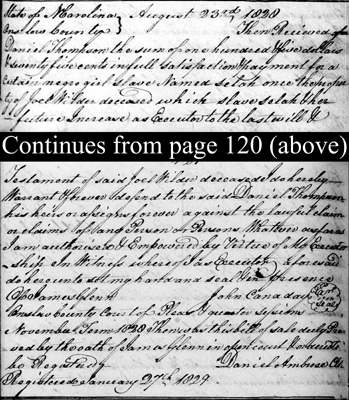 State of N Carolina } August 23rd, 1828
Onslow County } Then Recieved of
Daniel Thompson the sum of one hundred & five dollars
& seventy five cents in full satisfaction & payment for a
Certain negro girl slave Named Setah once the proper
ty of Joel Wilder deceased which slave Setah & her
future Increase, as Executor to the last will &
Continues from page 120 (above)
Testament of said Joel Wilder deceased do hereby
Warrant & forever defend to the said Daniel Thompson
his heirs or assigns forever against the lawful claim
or claims of any Person or Persons Whatever as far as
I am authorized & Empowered by Virtue of My Executor
ship In Witness whereof I as Executor aforesaid
do hereunto set my hand and seal In presence
Of James Glenn John Canaday
Onslow County Court of Pleas & quarter Sessions
November Term 1828 Then was this bill of sale duly Pro
ved by the oath of James Glenn in open court & ordered to
be Registered Daniel Ambrose Clk
Registered January 27th 1829